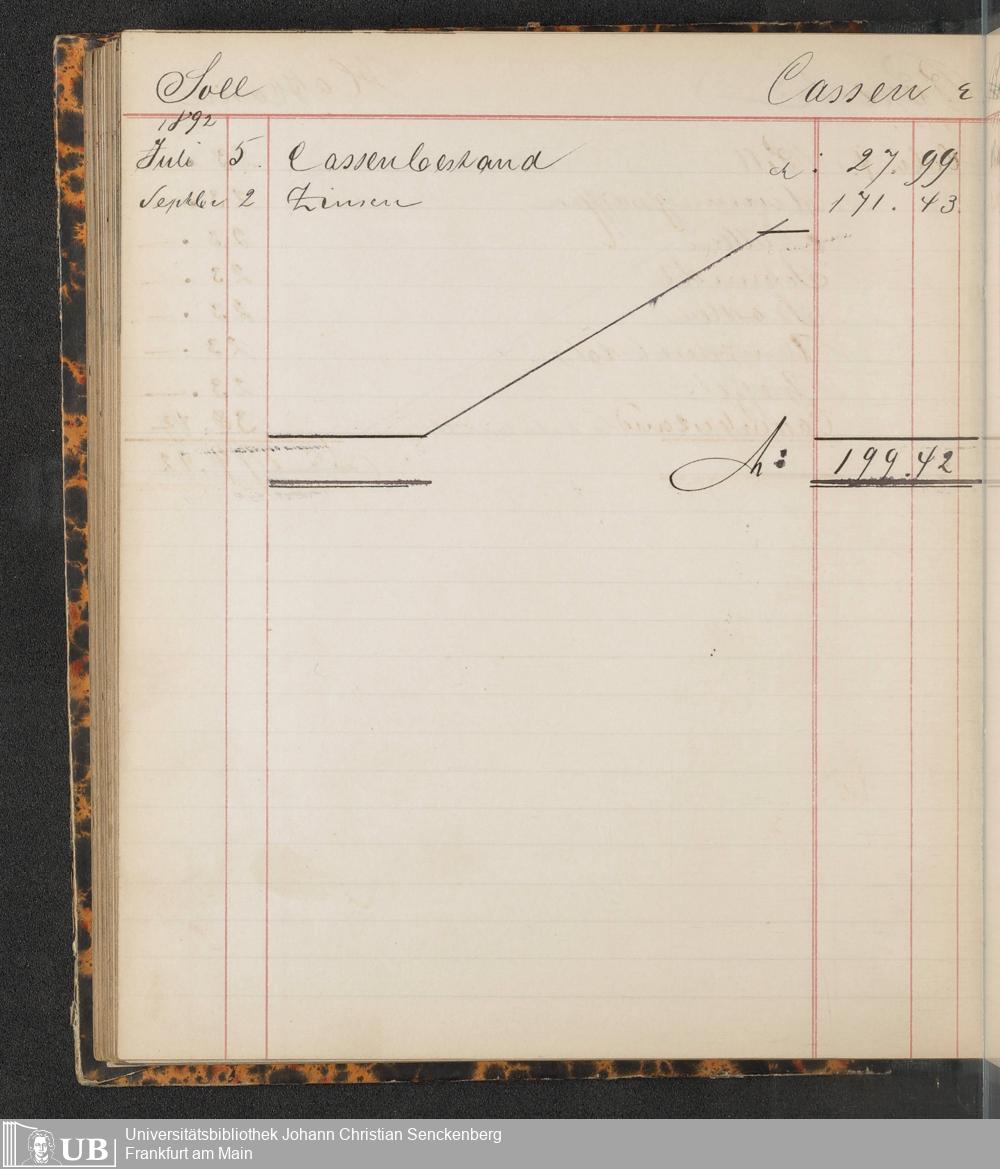 Soll Cassen
1892
Juli 5. Cassenbestand M: 27. 99
Septber 2 Zinsen 171. 43
M: 199.42
UB Universitätsbibliothek Johann Christian Senckenberg
Frankfurt am Main